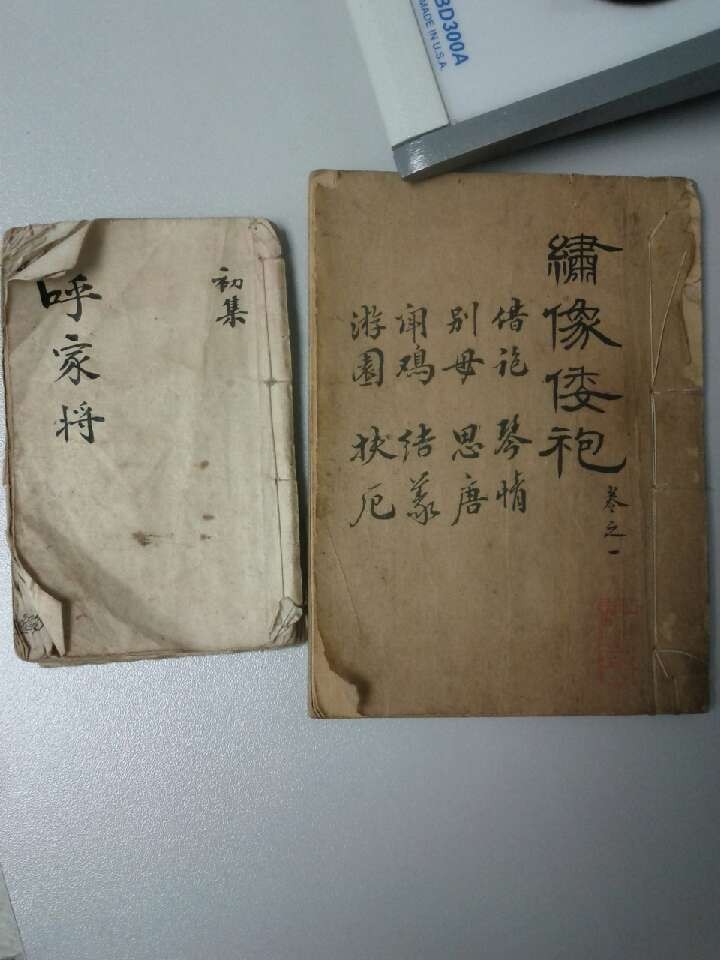 BD300A
MADE IN U.S.A.
初集
呼家将
繡像倭袍
卷之一
借袍 琴情
别母 思唐
闹鸡 结義
游園 扶厄